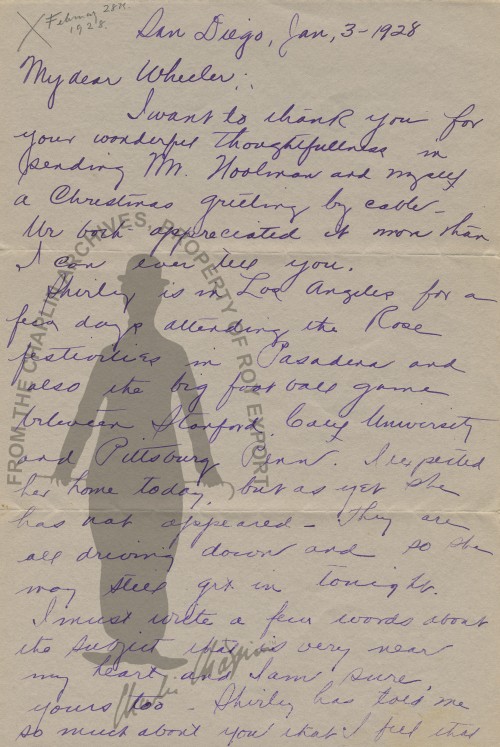 Februay 28th.
1928.
San Diego, Jan, 3-1928
My dear Wheeler:
I want to thank you for
your wonderful thoughtfullness in
sending Mr. Woolman and myself
a Christmas greeting by cable -
We both appreciated it more than
I can ever tell you.
Shirley is in Los Angeles for a
few days attending the Rose
festivities in Pasadena and
also the big foot ball game
between Stanford, University
and Pittsburg Penn. I expected
her home today, but as yet she
has not appeared - They are
all driving down and so she
may still get in tonight.
I must write a few words about
the subject that is very near
my heart and I am sure
yours too - Shirley has told me
so much about you that I feel that
FROM THE CHAPLIN ARCHIVES, PROPERTY OF ROY EXPORT
Charlie Chaplin